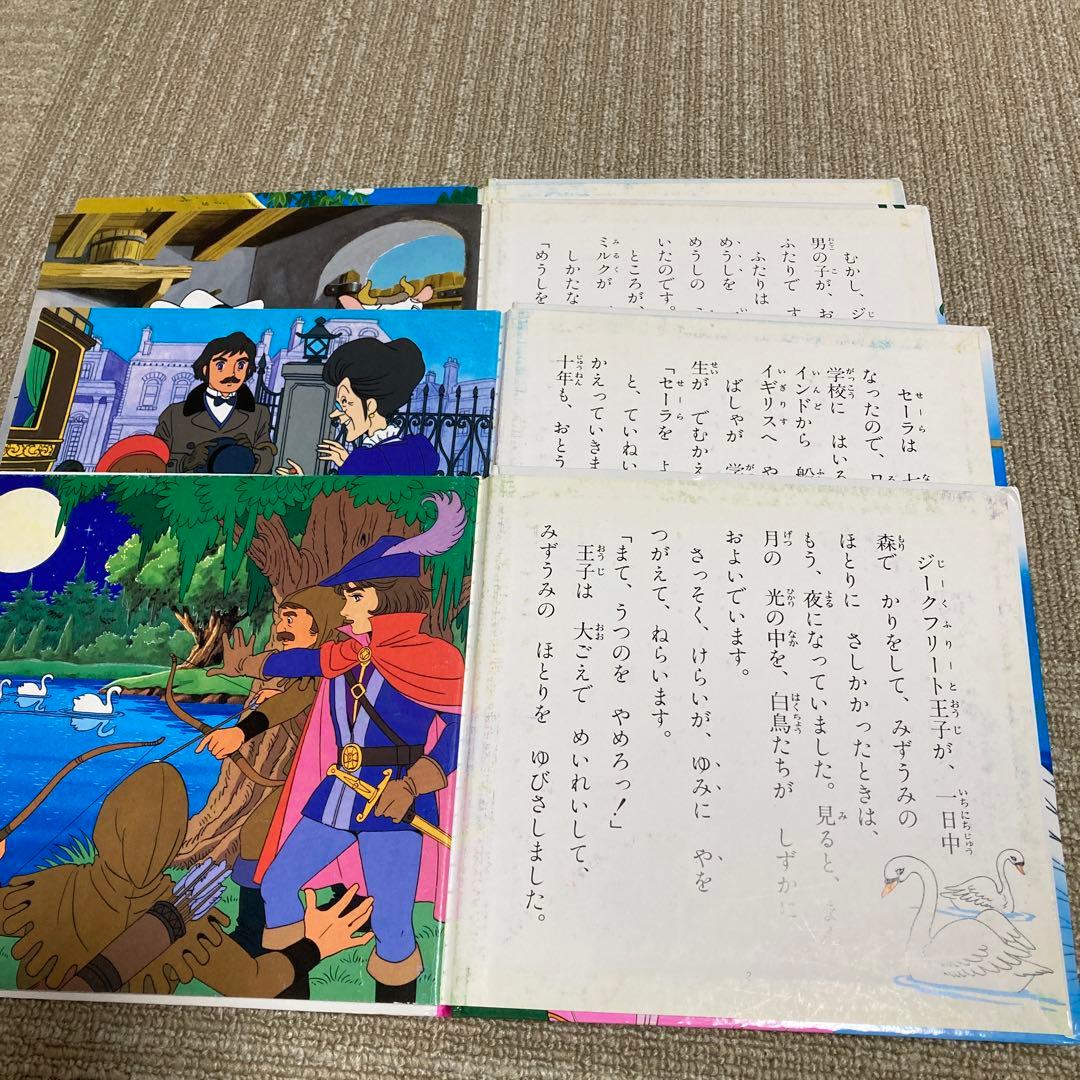 むかし、ジ
男の子が、お
ふたりで す
ふたりは
めうしを
めうしの
いたのです。
ところが、
ミルクが
しかたな
「めうしを
セーラは
なったので、ロ
学校に はいる
インドから 船
イギリスへ や
ばしゃが 学
生が でむかえ
「セーラを よ
と、ていねい
かえっていきま
十年も、おとう
ジークフリート王子が、一日中
森で かりをして、みずうみの
ほとりに さしかかったときは、
もう、夜になっていました。見ると、
月の 光の中を、白鳥たちが しずかに
およいでいます。
さっそく、けらいが、ゆみに やを
つがえて、ねらいます。
「まて、うつのを やめろっ!」
王子は 大ごえで めいれいして、
みずうみの ほとりを ゆびさしました。
2